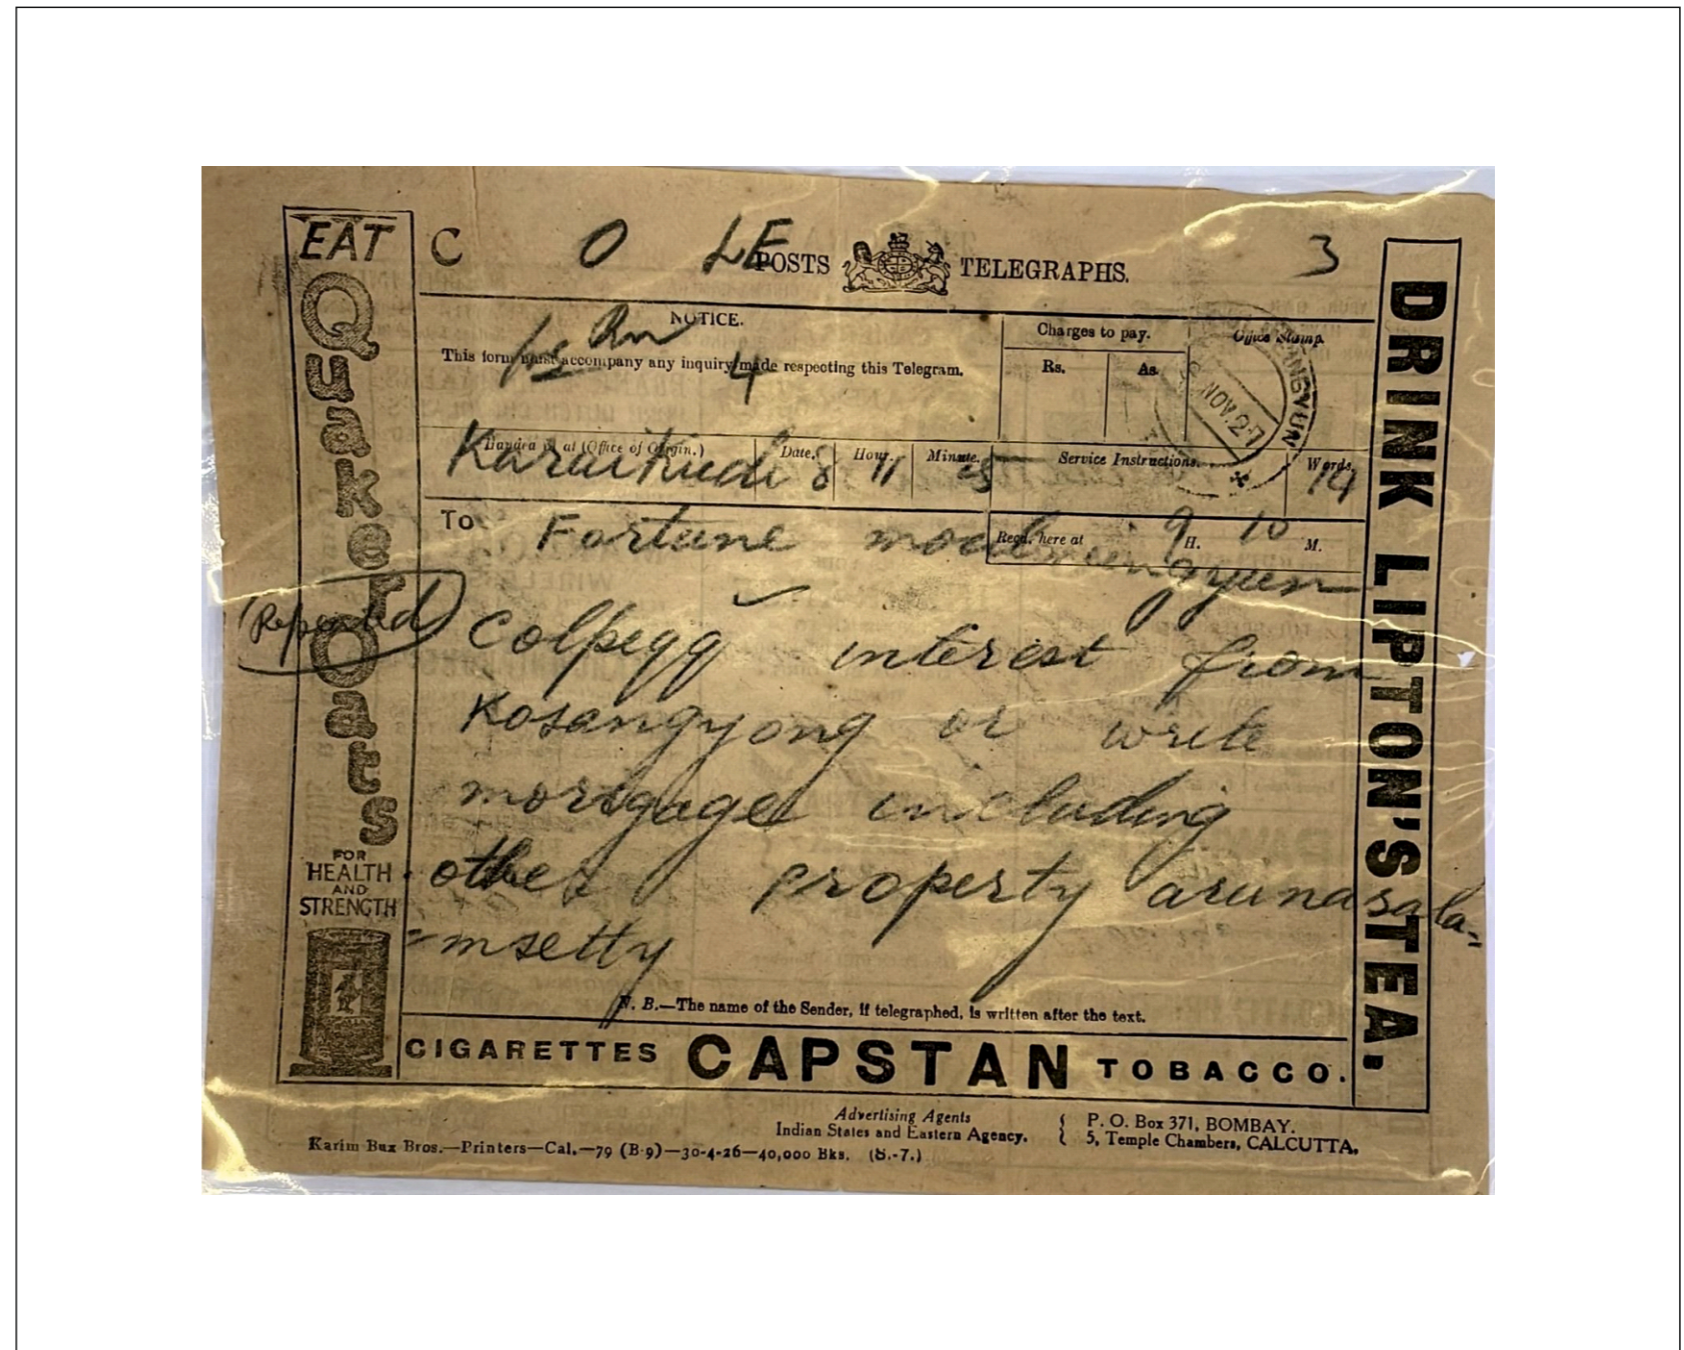 EAT
Quaker Oats
FOR
HEALTH
AND
STRENGTH
C O LE 3
POSTS TELEGRAPHS.
NOTICE.
This form must accompany any inquiry made respecting this Telegram.
4
Charges to pay.
Rs. As.
Office Stamp.
NOV. 27
Handed in at (Office of Origin.) Date. Hour. Minute. Service Instructions. Words.
Karaitkudi 8 11 14
To Fortune
Recd. here at 9 H. 10 M.
(Repeated)
Colpegg interest from
Kosangyong or write
mortgage including
other property arunasala-
=msetty
N. B.—The name of the Sender, if telegraphed, is written after the text.
CIGARETTES CAPSTAN TOBACCO.
DRINK LIPTON'S TEA.
Advertising Agents
Indian States and Eastern Agency.
P. O. Box 371, BOMBAY.
5, Temple Chambers, CALCUTTA.
Karim Bux Bros.—Printers—Cal.—79 (B-9)—30-4-26—40,000 Bks. (S.-7.)